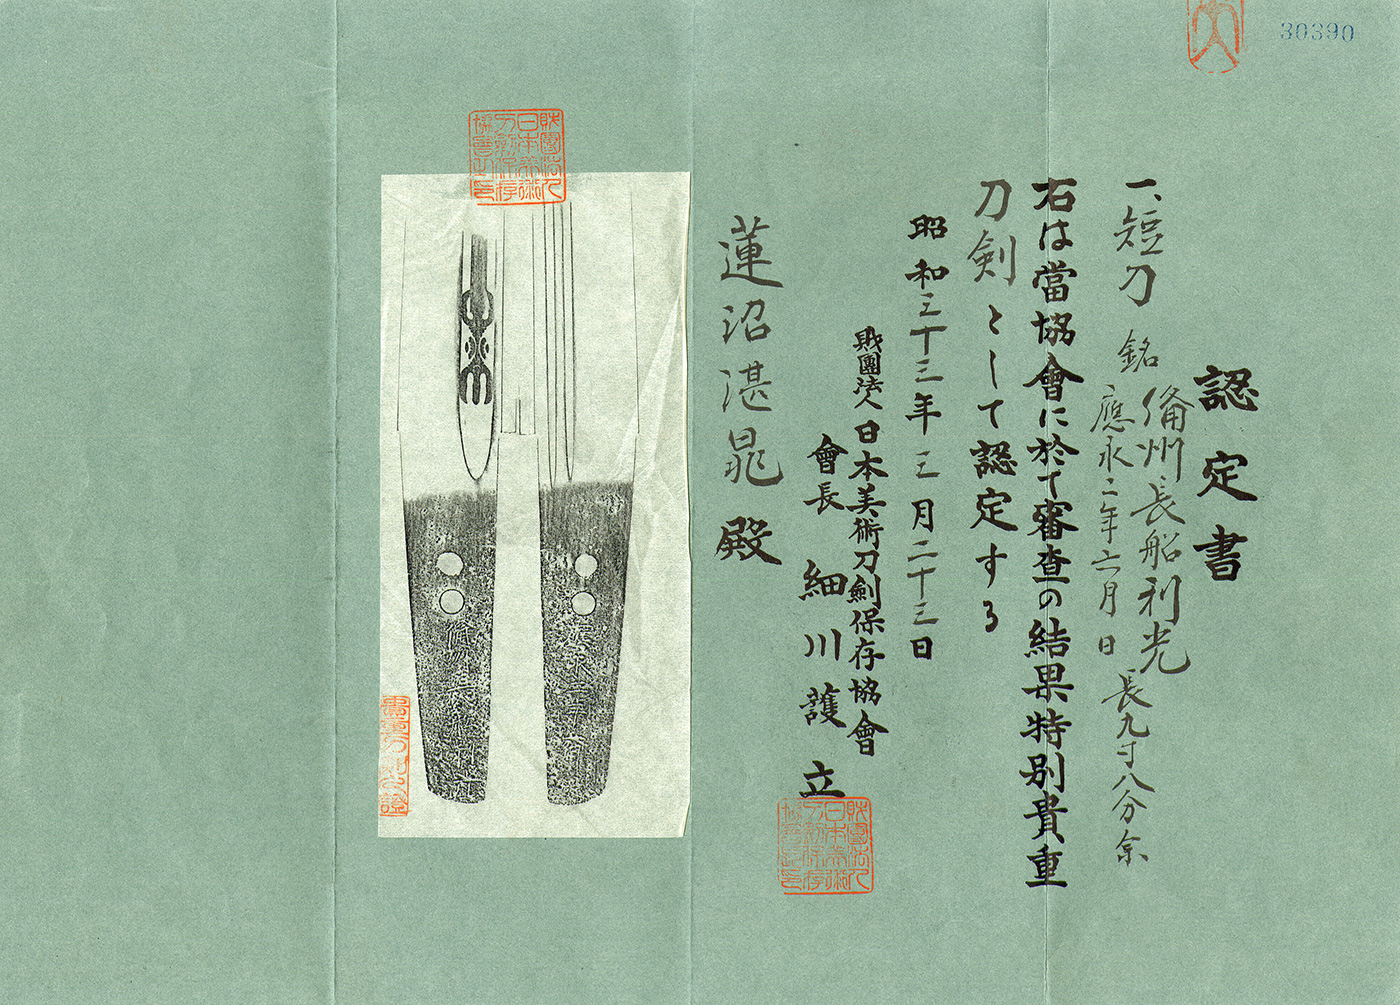 30390
認定書
一、短刀 銘 備州長船利光
應永二年六月日 長九寸八分余
右は當協會に於て審査の結果特別貴重
刀剣として認定する
昭和三十三年三月二十三日
財團法人日本美術刀劍保存協會
會長 細川護立
財團法人日本美術刀劍保存協會之印
蓮沼湛晁殿
財團法人日本美術刀劍保存協會之印